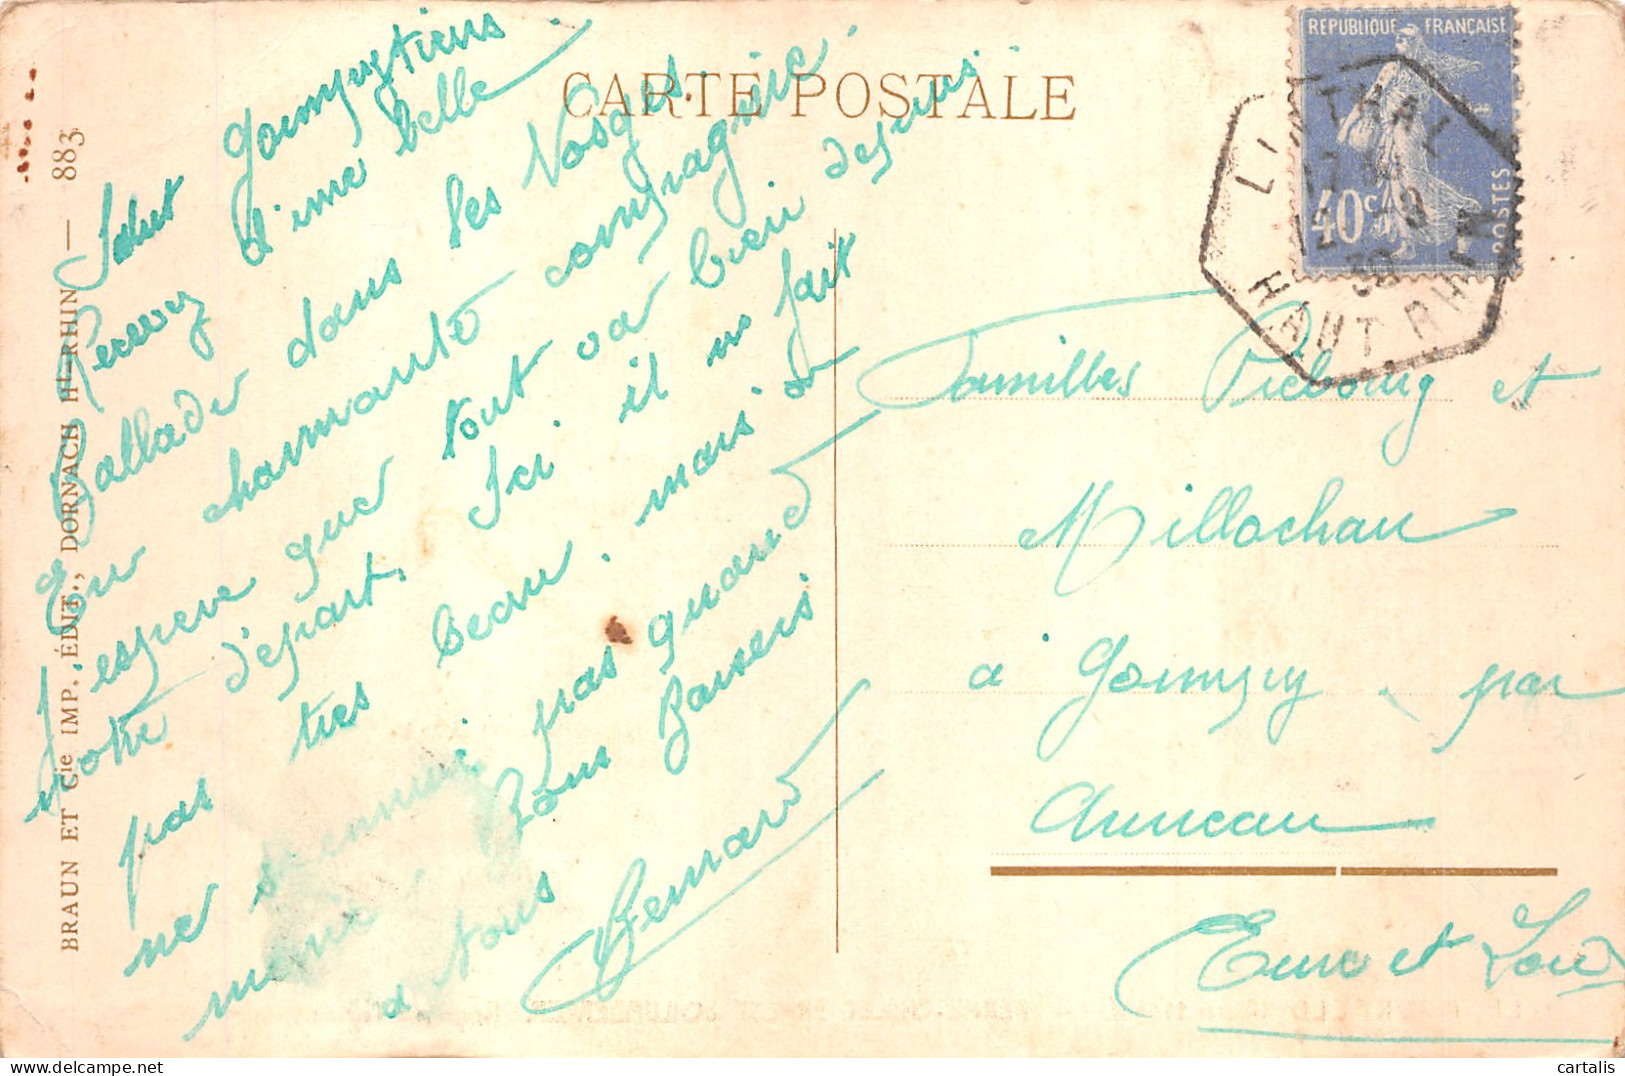 CARTE POSTALE
REPUBLIQUE FRANÇAISE
40c
POSTES
LINTHAL
HAUT RHIN
BRAUN ET Cie IMP. ÉDIT., DORNACH Ht-RHIN — 883
Salut
Recevez d'une belle
Ballade dans les Vosges.
En charmante compagnie
J'espere que tout va bien depuis
notre départ. Ici il ne fait
pas très beau. mais on
ne s'ennuie pas quand
même.
Bons Baisers
a tous
Bernard
Familles et
Millochau
à par
Auneau
Eure et Loir
cartalis